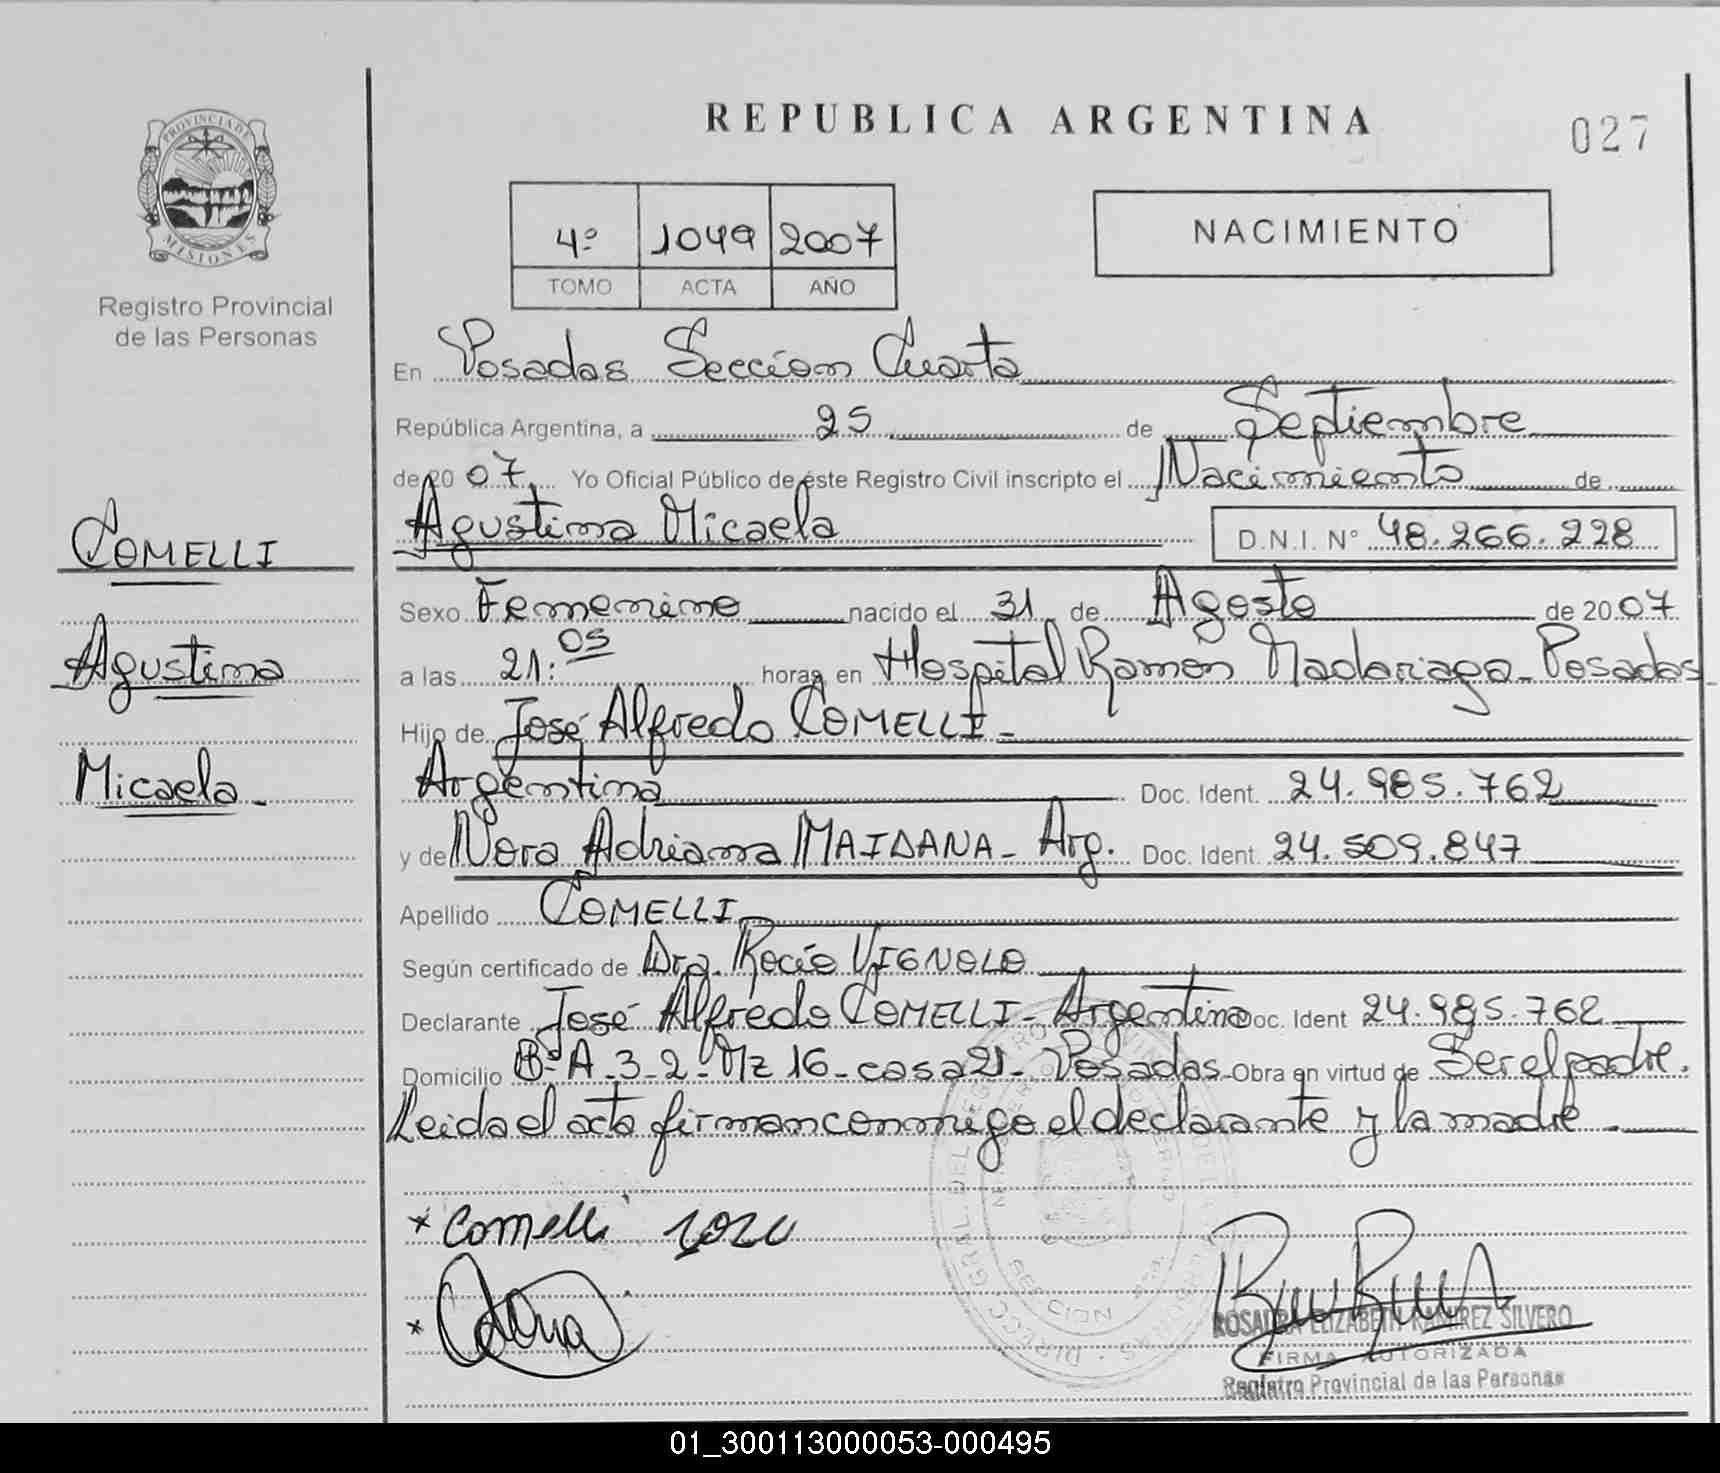 REPUBLICA ARGENTINA
027
PROVINCIA DE
MISIONES
Registro Provincial
de las Personas
4º 1049 2007
TOMO ACTA AÑO
NACIMIENTO
En Posadas Sección Cuarta
República Argentina, a 25 de Septiembre
de 20 07 Yo Oficial Público de éste Registro Civil inscripto el Nacimiento de
Agustina Micaela D.N.I. Nº 48.266.228
COMELLI
Agustina
Micaela.-
Sexo Femenino nacido el 31 de Agosto de 20 07
a las 21:05 horas en Hospital Ramón Madariaga - Posadas -
Hijo de José Alfredo COMELLI -
Argentina Doc. Ident. 24.985.762
y de Nora Adriana MAIDANA - Arg. Doc. Ident. 24.509.847
Apellido COMELLI
Según certificado de Dra. Rocío VIGNOLO
Declarante José Alfredo COMELLI - Argentino Doc. Ident 24.985.762
Domicilio Bº A-3-2- Mz 16- casa 21- Posadas - Obra en virtud de Ser el padre.
Leida el acta firman conmigo el declarante y la madre .-
x Comelli José
x
ROSALBA ELIZABETH RAMIREZ SILVERO
FIRMA AUTORIZADA
Registro Provincial de las Personas
01_300113000053-000495